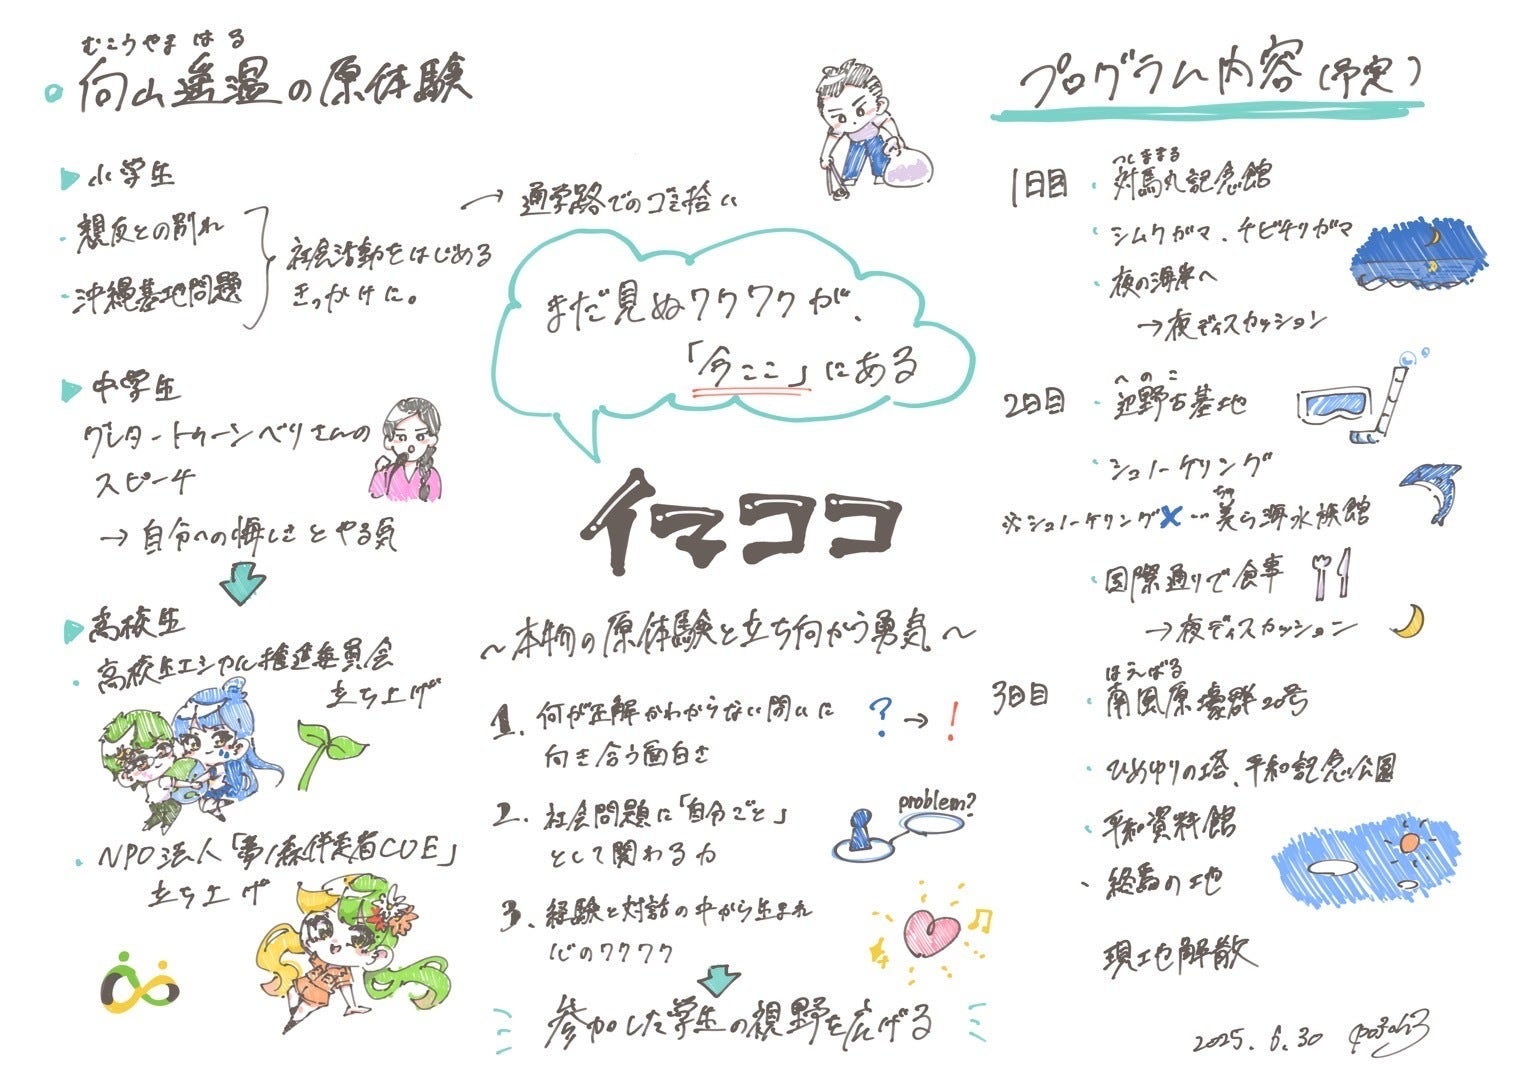 むこうやま はる
向山遥温の原体験
小学生
・親友との別れ
・沖縄基地問題
社会活動をはじめる
きっかけに。
→ 通学路でのゴミ拾い
中学生
グレタ・トゥーンベリさんの
スピーチ
→ 自分への悔しさとやる気
高校生
・高校生エシカル推進委員会
立ち上げ
・NPO法人「夢ノ森伴走者CUE」
立ち上げ
まだ見ぬワクワクが、
「今ここ」にある
イマココ
〜本物の原体験と立ち向かう勇気〜
1. 何が正解かわからない問いに
向き合う面白さ
? → !
2. 社会問題に「自分ごと」
として関わる力
problem?
3. 経験と対話の中から生まれ
心のワクワク
参加した学生の視野を広げる
プログラム内容(予定)
1日目
つしままる
・対馬丸記念館
・シムクガマ、チビチリガマ
・夜の海岸へ
→夜ディスカッション
2日目
へのこ
・辺野古基地
・シュノーケリング
ちゅ
※シュノーケリング✕…美ら海水族館
・国際通りで食事
→夜ディスカッション
3日目
はえばる
・南風原壕群20号
・ひめゆりの塔、平和記念公園
・平和資料館
・終焉の地
現地解散
2025.6.30